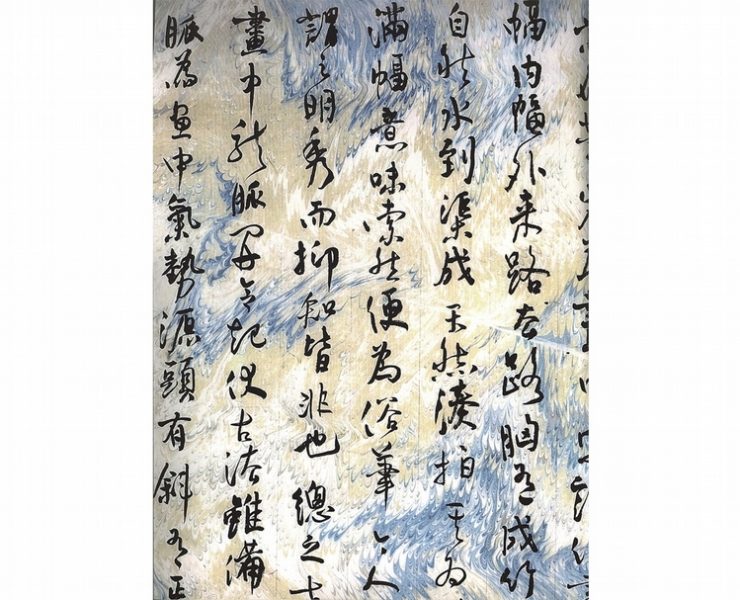 幅内幅外来路去路胸有成竹
自然水到渠成天然湊拍其為
滿幅意味索然便為俗筆令人
謂之明秀而抑知皆非也總之
畫中龍脈開合起伏古法雖備
脈為画中氣勢源頭有斜有正